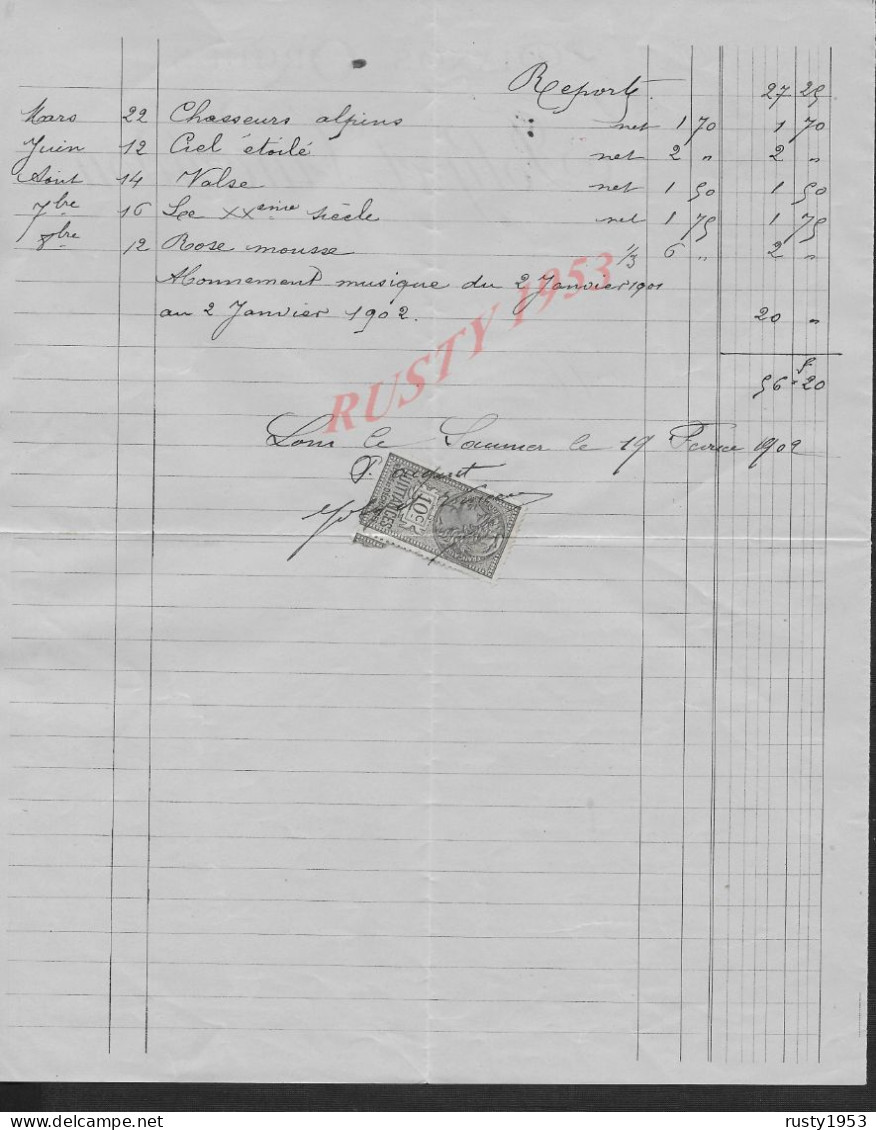 Report. 27 25
Mars 22 Chasseurs alpins net 1 70 1 70
Juin 12 Ciel étoilé net 2 " 2 "
Août 14 Valse net 1 50 1 50
7bre 16 Le XXeme siècle net 1 75 1 75
8bre 12 Rose mousse 1/3 6 " 2 "
Abonnement musique du 2 Janvier 1901
au 2 Janvier 1902. 20 "
56 f 20
Lons le Saunier le 19 Février 1902
P. acquit
QUITTANCES
10c
RUSTY 1953
rusty1953